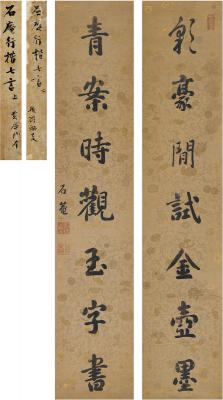 彩豪閒試金壺墨
青案時觀玉字書
石菴
石庵行楷七言
石庵行楷七言 上